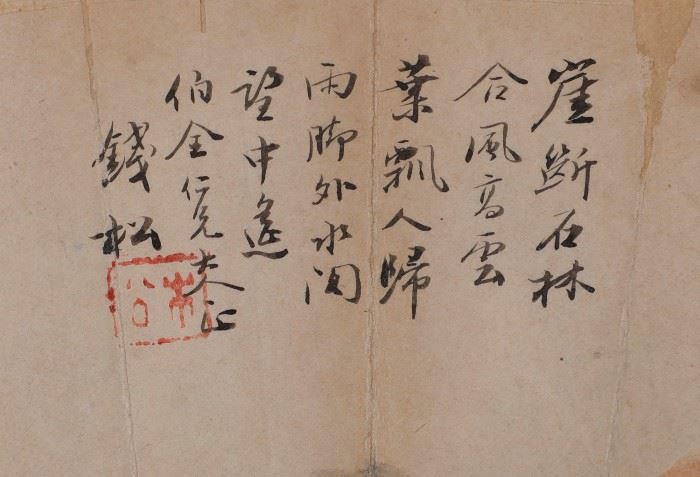 崖斷石林
合風高雲
葉飄人歸
雨脚外水闊
望中遙
伯全仁兄大人正
錢松